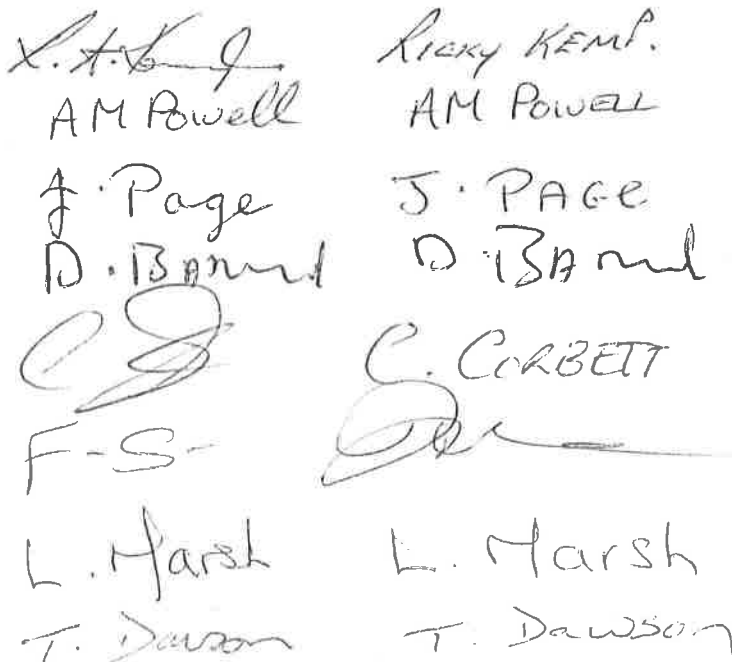 RICKY KEMP.
AM Powell AM POWELL
J. Page J. PAGE
D. D.
C. CORBETT
F-S-
L. Marsh L. Marsh
T. Dawson T. Dawson